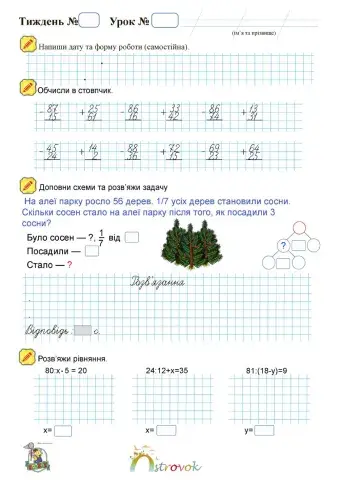 Тиждень № Урок №
(ім'я та прізвище)
Напиши дату та форму роботи (самостійна).
Обчисли в стовпчик.
- 87 + 25 - 86 + 33 - 86 + 13
15 61 16 42 14 31
- 45 + 14 - 88 + 72 - 69 + 64
24 2 36 15 23 25
Доповни схеми та розв'яжи задачу
На алеї парку росло 56 дерев. 1/7 усіх дерев становили сосни.
Скільки сосен стало на алеї парку після того, як посадили 3
сосни?
Було сосен — ?, 1/7 від
Посадили —
Стало — ?
?
Розв'язання
Відповідь: с.
Розв'яжи рівняння.
80:x·5 = 20 24:12+x=35 81:(18-y)=9
x= x= y=
strovok